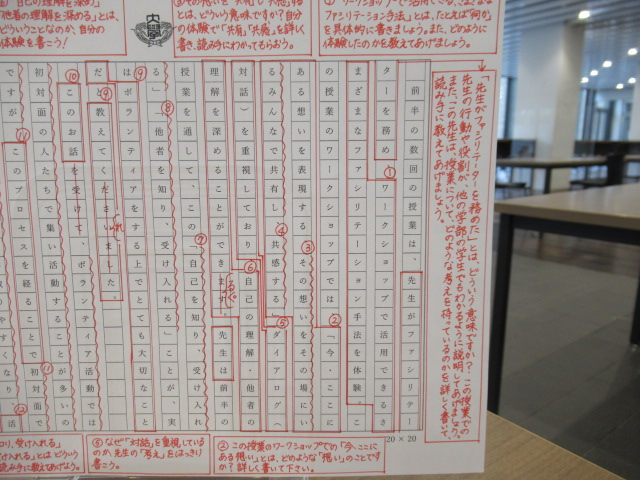 ファシリテーション手法」とは、たとえば「何か」
を具体的に書きましょう。また、どのように
体験したのかを教えてあげましょう。
とは、どういう意味ですか?自分の
体験で「共有」「共感」を詳しく
書き、読み手にわかってもらおう。
「自己の理解を深める」
「他者の理解を深める」とは、
どういうことなのか、自分の
体験を書こう!
大學
「先生がファシリテーターを務めた」とは、どういう意味ですか?この授業での
先生の行動や役割が、他の学部の学生でもわかるように説明してあげましょう。
また、この先生は、授業について、どのような考えを持っているのかを詳しく書いて、
読み手に教えてあげましょう。
前半の数回の授業は、先生がファシリテー
ターを務め、①ワークショップで活用できるさ
まざまなファシリテーション手法を体験。こ
の授業のワークショップでは②「今・ここに
ある想いを表現する③その想いをその場にい
るみんなで共有し④共感する」⑤ダイアログ(
対話)を重視しており⑥自己の理解・他者の
理解を深めることができます。先生は前半の
授業を通して、この⑦「自己を知り、受け入れ
る」⑧「他者を知り、受け入れる」ことが、実
は⑨ボランティアをする上でとても大切なこと
だと教えてくださいました。
⑩このお話を受けて、ボランティア活動では
初対面の人たちで集い活動することが多いの
ですが⑪このプロセスを経ることで初対面で
やすくなり⑫活
20×20
②この授業のワークショップでの「今、ここに
ある想い」とは、どのような「想い」のことです
か?詳しく書いて下さい。
⑤なぜ「対話」を重視している
のか、先生の「考え」をはっきり
書こう。
受け入れる」
とは どういう
読み手に教えてあげよう。